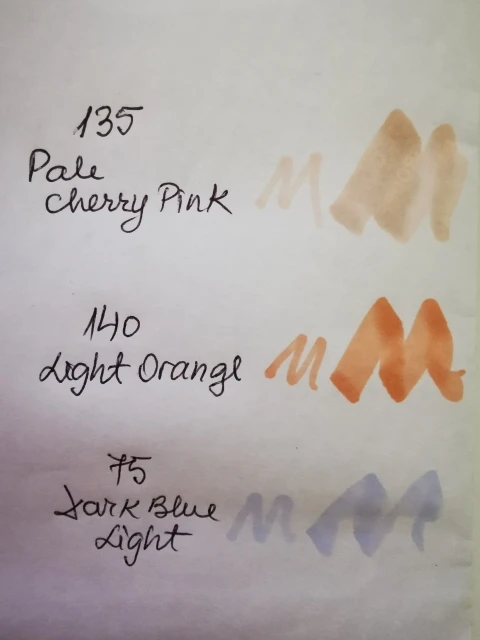 135
Pale
Cherry Pink
140
Light Orange
75
Dark Blue
Light